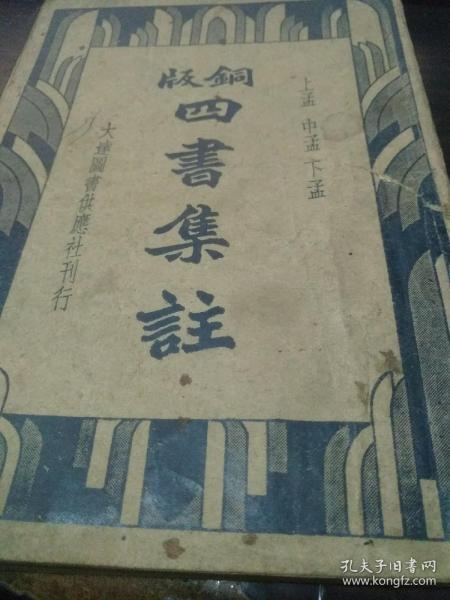 上孟 中孟 下孟
銅版
四書集註
大達圖書供應社刊行
孔夫子旧书网
www.kongfz.com